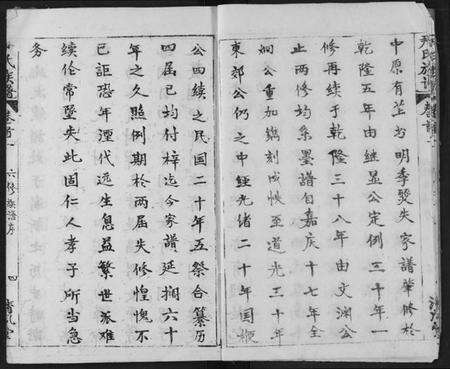 中原有年与明季燹失家谱肇修於
乾隆五年由继显公定例三十年一
修再续于乾隆三十八年由文渊公
止两修均系墨谱自嘉庆十七年全
炯公重加镌刻成帙至道光三十年
东郊公仍之中经光绪二十年国椒
公四续之民国二十年五祭合纂历
四届已均付梓迄今家谱延搁六十
年之久照例期於两届失修惶愧不
已讵恐年湮代远生息益繁世派难
续伦常暨失此固仁人孝子所当急
务
氏族谱
卷首
六修族谱序
四